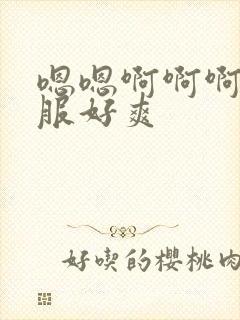 嗯嗯啊啊啊
服好爽
好喫的櫻桃肉